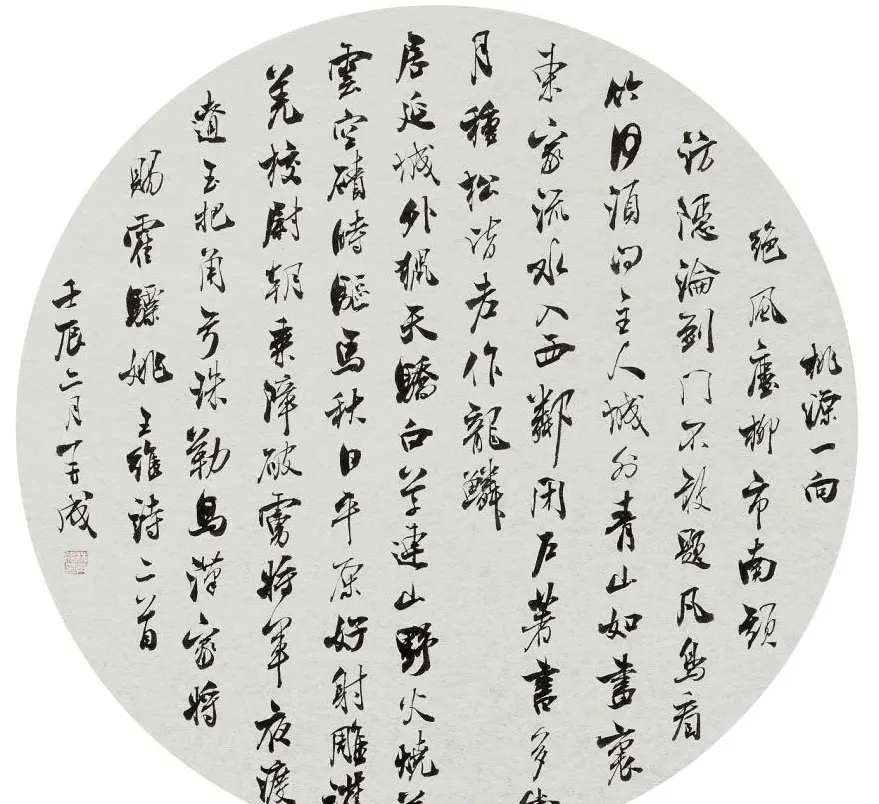 桃源一向
絕風塵柳市南頭
訪隱淪到門不敢題凡鳥看
竹何須問主人城外青山如畫裏
東家流水入西鄰閉戶著書多
月種松皆老作龍鱗
居延城外獵天驕白草連山野火燒
雲空磧時驅馬秋日平原好射雕
羌校尉朝乘障破虜將軍夜渡
遼玉靶角弓珠勒馬漢家將
賜霍驃姚王維詩二首
壬辰二月成